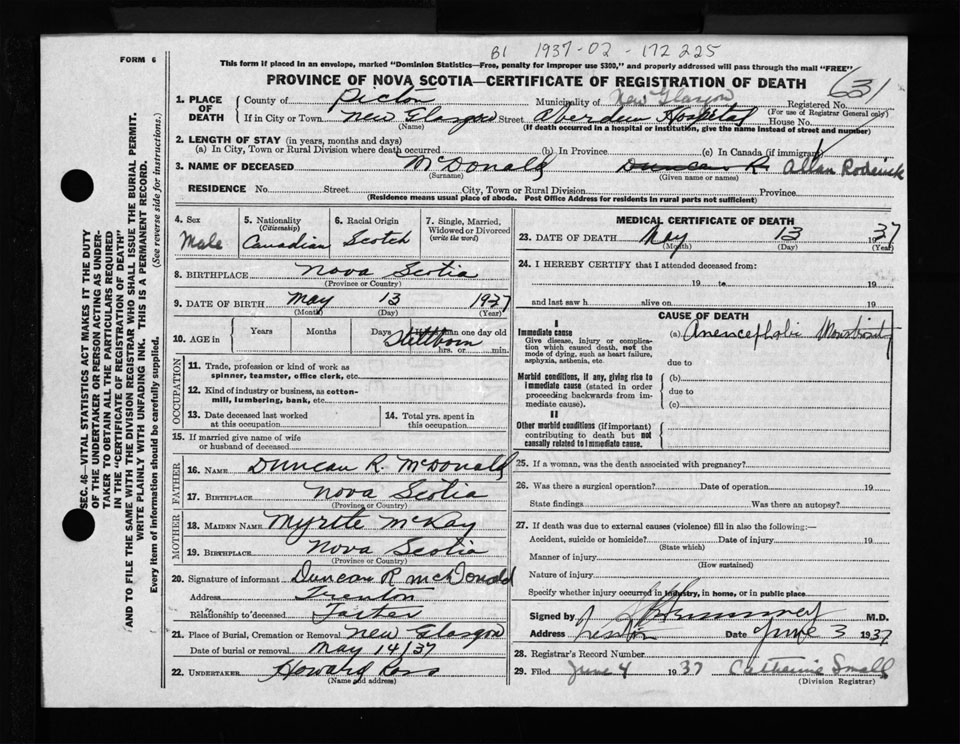 B1 1937-02-172225
FORM 6
This form if placed in an envelope, marked "Dominion Statistics—Free, penalty for improper use $300," and properly addressed will pass through the mail "FREE"
PROVINCE OF NOVA SCOTIA—CERTIFICATE OF REGISTRATION OF DEATH
631
1. PLACE OF DEATH County of Pictou Municipality of New Glasgow Registered No.
(For use of Registrar General only)
If in City or Town New Glasgow Street Aberdeen Hospital House No.
(Name) (If death occurred in a hospital or institution, give the name instead of street and number)
2. LENGTH OF STAY (in years, months and days)
(a) In City, Town or Rural Division where death occurred (b) In Province (c) In Canada (if immigrant)
3. NAME OF DECEASED McDonald Duncan R. Allan Roderick
(Surname) (Given name or names)
RESIDENCE No. Street City, Town or Rural Division Province
(Residence means usual place of abode. Post Office Address for residents in rural parts not sufficient)
4. Sex Male
5. Nationality (Citizenship) Canadian
6. Racial Origin Scotch
7. Single, Married, Widowed or Divorced (write the word)
8. BIRTHPLACE Nova Scotia
(Province or Country)
9. DATE OF BIRTH May 13 1937
(Month) (Day) (Year)
10. AGE in Years Months Days If less than one day old
Stillborn
hrs. or min.
OCCUPATION
11. Trade, profession or kind of work as spinner, teamster, office clerk, etc.
12. Kind of industry or business, as cotton-mill, lumbering, bank, etc.
13. Date deceased last worked at this occupation
14. Total yrs. spent in this occupation
15. If married give name of wife or husband of deceased
FATHER
16. NAME Duncan R. McDonald
17. BIRTHPLACE Nova Scotia
(Province or Country)
MOTHER
18. MAIDEN NAME Myrtle McKay
19. BIRTHPLACE Nova Scotia
(Province or Country)
20. Signature of informant Duncan R McDonald
Address Trenton
Relationship to deceased Father
21. Place of Burial, Cremation or Removal New Glasgow
Date of burial or removal May 14/37
22. UNDERTAKER Howard Ross
(Name and address)
MEDICAL CERTIFICATE OF DEATH
23. DATE OF DEATH May 13 1937
(Month) (Day) (Year)
24. I HEREBY CERTIFY that I attended deceased from:
19 to 19
and last saw h alive on 19
CAUSE OF DEATH
I
Immediate cause (a) Anencephalic Monstrosity
Give disease, injury or complication which caused death, not the mode of dying, such as heart failure, asphyxia, asthenia, etc.
due to
Morbid conditions, if any, giving rise to immediate cause (stated in order proceeding backwards from immediate cause).
(b)
due to
(c)
II
Other morbid conditions (if important) contributing to death but not causally related to immediate cause.
25. If a woman, was the death associated with pregnancy?
26. Was there a surgical operation? Date of operation 19
State findings Was there an autopsy?
27. If death was due to external causes (violence) fill in also the following:—
Accident, suicide or homicide? Date of injury 19
(State which)
Manner of injury
(How sustained)
Nature of injury
Specify whether injury occurred in industry, in home, or in public place
Signed by M.D.
Address Trenton Date June 3 1937
28. Registrar's Record Number
29. Filed June 4 1937 Catherine Small
(Division Registrar)
SEC. 46—VITAL STATISTICS ACT MAKES IT THE DUTY
OF THE UNDERTAKER OR PERSON ACTING AS UNDER-
TAKER TO OBTAIN ALL THE PARTICULARS REQUIRED
IN THE "CERTIFICATE OF REGISTRATION OF DEATH"
AND TO FILE THE SAME WITH THE DIVISION REGISTRAR WHO SHALL ISSUE THE BURIAL PERMIT.
WRITE PLAINLY WITH UNFADING INK. THIS IS A PERMANENT RECORD.
Every item of information should be carefully supplied. (See reverse side for instructions.)